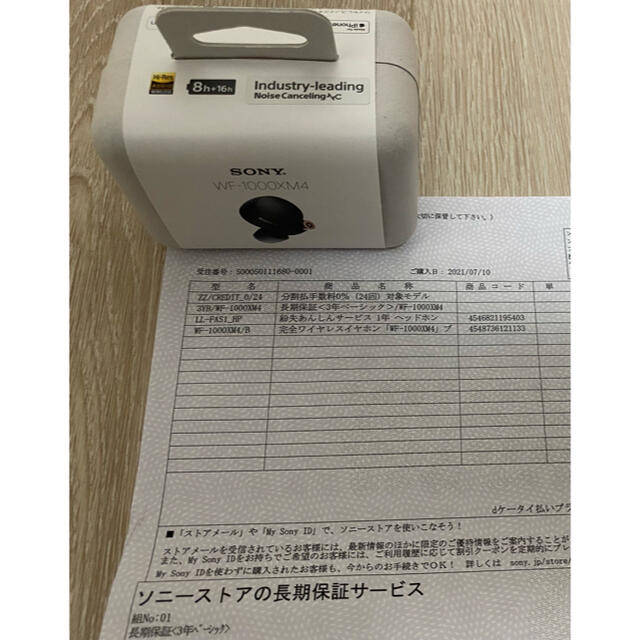 Made for
iPhone
Hi-Res
AUDIO
WIRELESS
8h+16h
Industry-leading
Noise Canceling
SONY
WF-1000XM4
切に保管して下さい。)
受注番号: S00050111680-0001
ご購入日: 2021/07/10
型 名 商 品 名 称 商品コード 単
ZZ/CREDIT_0/24 分割払手数料0% (24回) 対象モデル
3YB/WF-1000XM4 長期保証<3年ベーシック>/WF-1000XM4
LL-FAS1_HP 紛失あんしんサービス 1年 ヘッドホン 4546821195403
WF-1000XM4/B 完全ワイヤレスイヤホン「WF-1000XM4」ブ 4548736121133
dケータイ払いプラ
■「ストアメール」や「My Sony ID」で、ソニーストアを使いこなそう!
ストアメールを受信されているお客様には、最新情報のほかに限定のご優待情報をご案内することが
また、My Sony IDをお持ちでご希望のお客様には、ご利用履歴に応じて割引クーポンを定期的にプレ
My Sony IDを使わずに購入されたお客様も、今からのお手続きでOK! 詳しくは sony.jp/store/
ソニーストアの長期保証サービス
組No:01
長期保証<3年ベーシック>